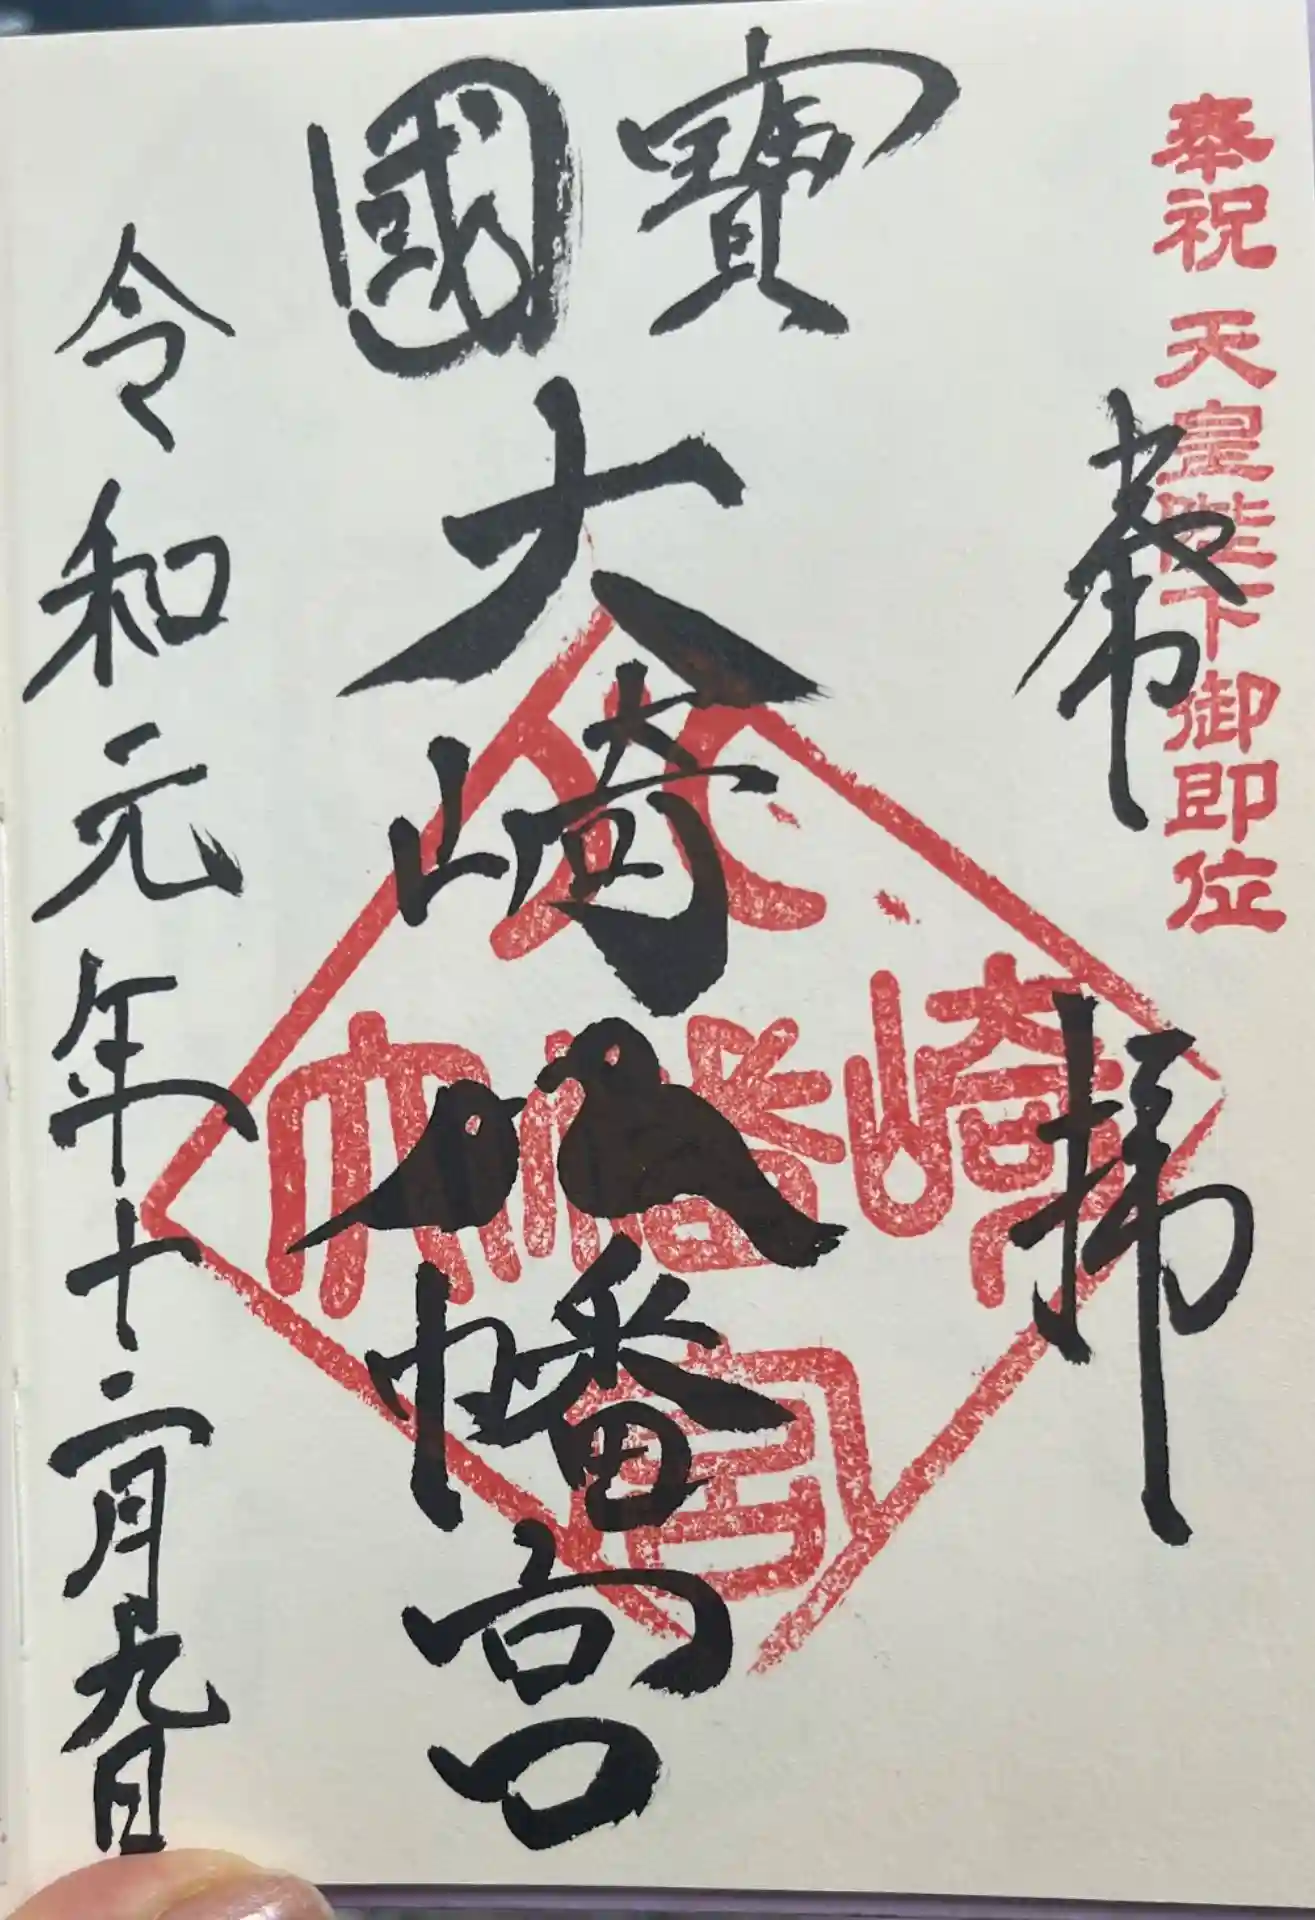 奉祝 天皇陛下御即位
奉拝
國寶
大崎八幡宮
大崎八幡宮
令和元年十二月九日